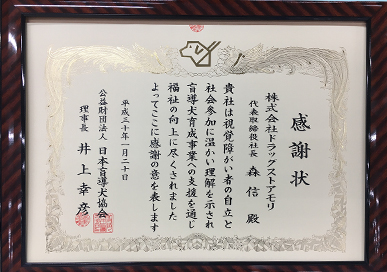 感謝状
株式会社ドラッグストアモリ
代表取締役社長 森信 殿
貴社は視覚障がい者の自立と
社会参加に温かい理解を示され
盲導犬育成事業への支援を通じ
福祉の向上に尽くされました
よってここに感謝の意を表します
平成三十年一月二十日
公益財団法人 日本盲導犬協会
理事長 井上幸彦